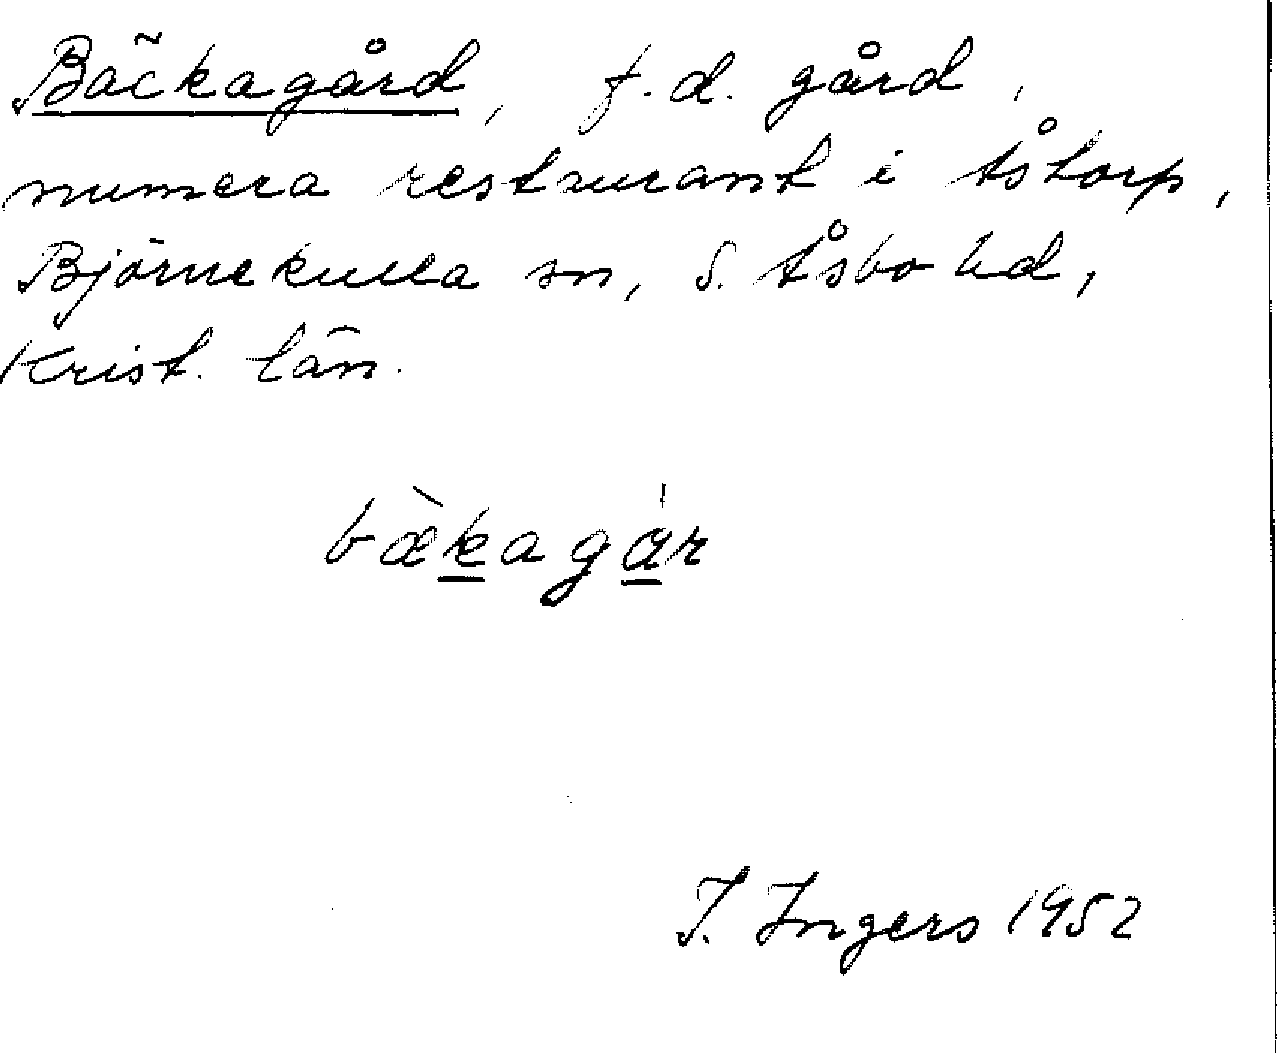 Bäckagård, f.d. gård,
numera restaurant i Åstorp,
Björnekulla sn, S. Åsbo hd,
Krist. län.
bæ̀kagár
I. Ingers 1952